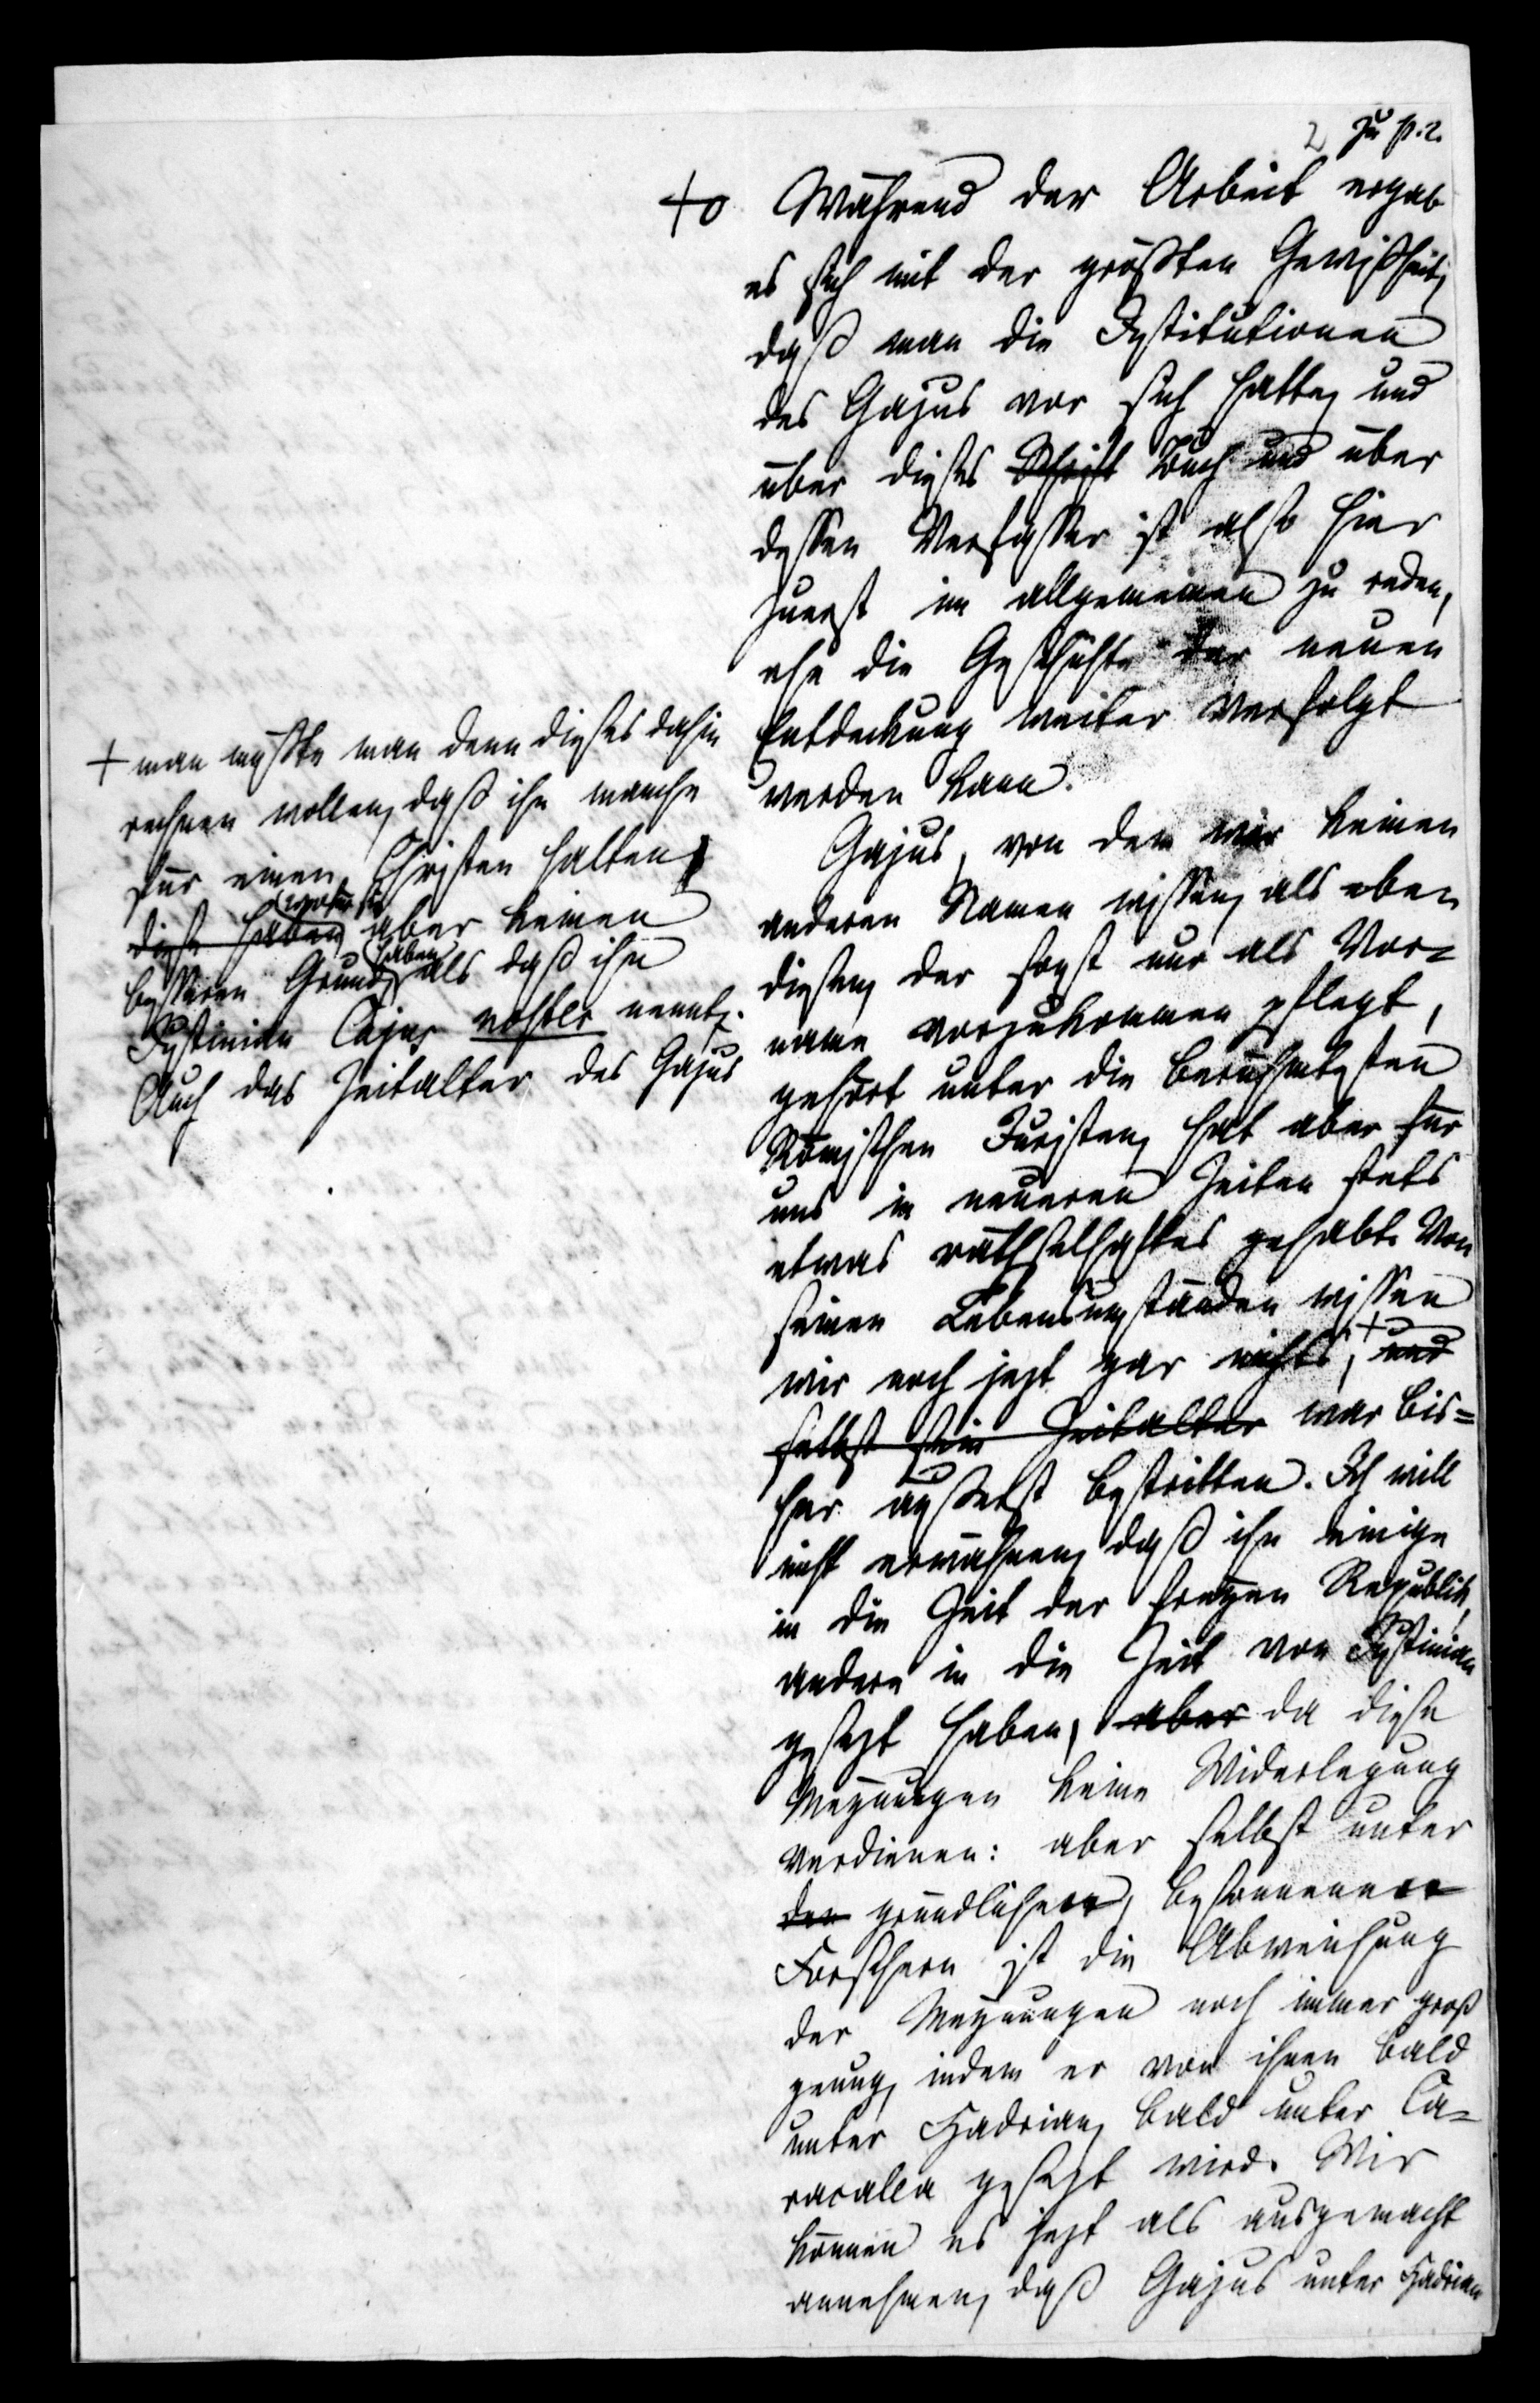 2 zu p. 2.
+o Während der Arbeit ergab
es sich mit der größten Gewißheit,
daß man die Institutionen
des Gajus vor sich hatte, und
über dieses Schrift Buch und über
dessen Verfasser ist also hier
zuerst im allgemeinen zu reden,
ehe die Geschichte der neuen
Entdeckung weiter verfolgt
werden kann.
Gajus, von dem wir keinen
anderen Namen wissen, als eben
diesen, der sonst nur als Vor-
name vorzukommen pflegt,
gehört unter die berühmtesten
Römischen Juristen, hat aber für
uns in neueren Zeiten stets
etwas räthselhaftes gehabt. Von
seinen Lebensumständen wissen
wir noch jezt gar nichts, + und
selbst sein Zeitalter war bis=
her äusserst bestritten. Ich will
nicht erwähnen, daß ihn einige
in die Zeit der freyen Republik,
andere in die Zeit von Justinian
gesezt haben, aber da diese
Meynungen keine Widerlegung
verdienen: aber selbst unter
den gründlichern, besonnenern
Forschern ist die Abweichung
der Meynungen noch immer groß
genug, indem er von ihnen bald
unter Hadrian, bald unter Ca-
racalla gesezt wird. Wir
können es jezt als ausgemacht
annehmen, daß Gajus unter Hadrian
+ man müßte man denn dieses dahin
rechnen wollen, daß ihn manche
für einen Christen halten,
wofür sie
diese haben aber keinen
haben
besseren Grund, als daß ihn
Justinian Cajus noster nennt.
Auch das Zeitalter des Gajus